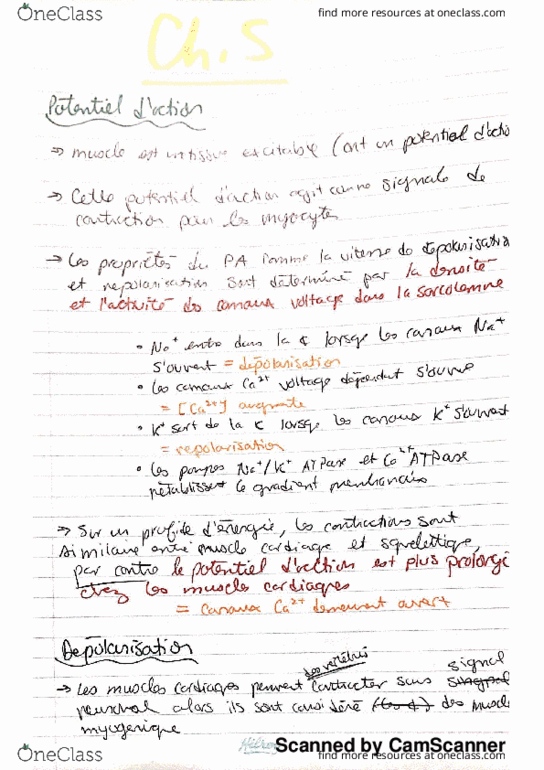 OneClass
find more resources at oneclass.com
Ch. 5
Potentiel d'action
→ muscle est un tissu excitable (ont un potentiel d'actio
→ Cette potentiel d'action agit comme signale de
contraction pour les myocyte
→ Les propriétés du PA comme la vitesse de dépolarisation
et repolarisation sont déterminé par la densité
et l'activité des canaux voltage dans la sarcolemme
• Na+ entre dans la c lorsque les canaux Na+
s'ouvrent = dépolarisation
• Les canaux Ca2+ voltage dépendant s'ouvre
= [Ca2+] augmente
• K+ sort de la c lorsque les canaux K+ s'ouvrent
= repolarisation
• Les pompes Na+/K+ ATPase et Ca2+ ATPase
rétablissent le gradient membranaire
→ Sur un profile d'énergie, les contractions sont
similaire entre muscle cardiaque et squelettique,
par contre le potentiel d'action est plus prolongé
chez les muscles cardiaques
= Canaux Ca2+ demeurent ouvert
Dépolarisation
des vertébrés signal
→ Les muscles cardiaques peuvent contracter sans
neuronal alors ils sont considéré des muscle
myogenique
Scanned by CamScanner
OneClass
find more resources at oneclass.com